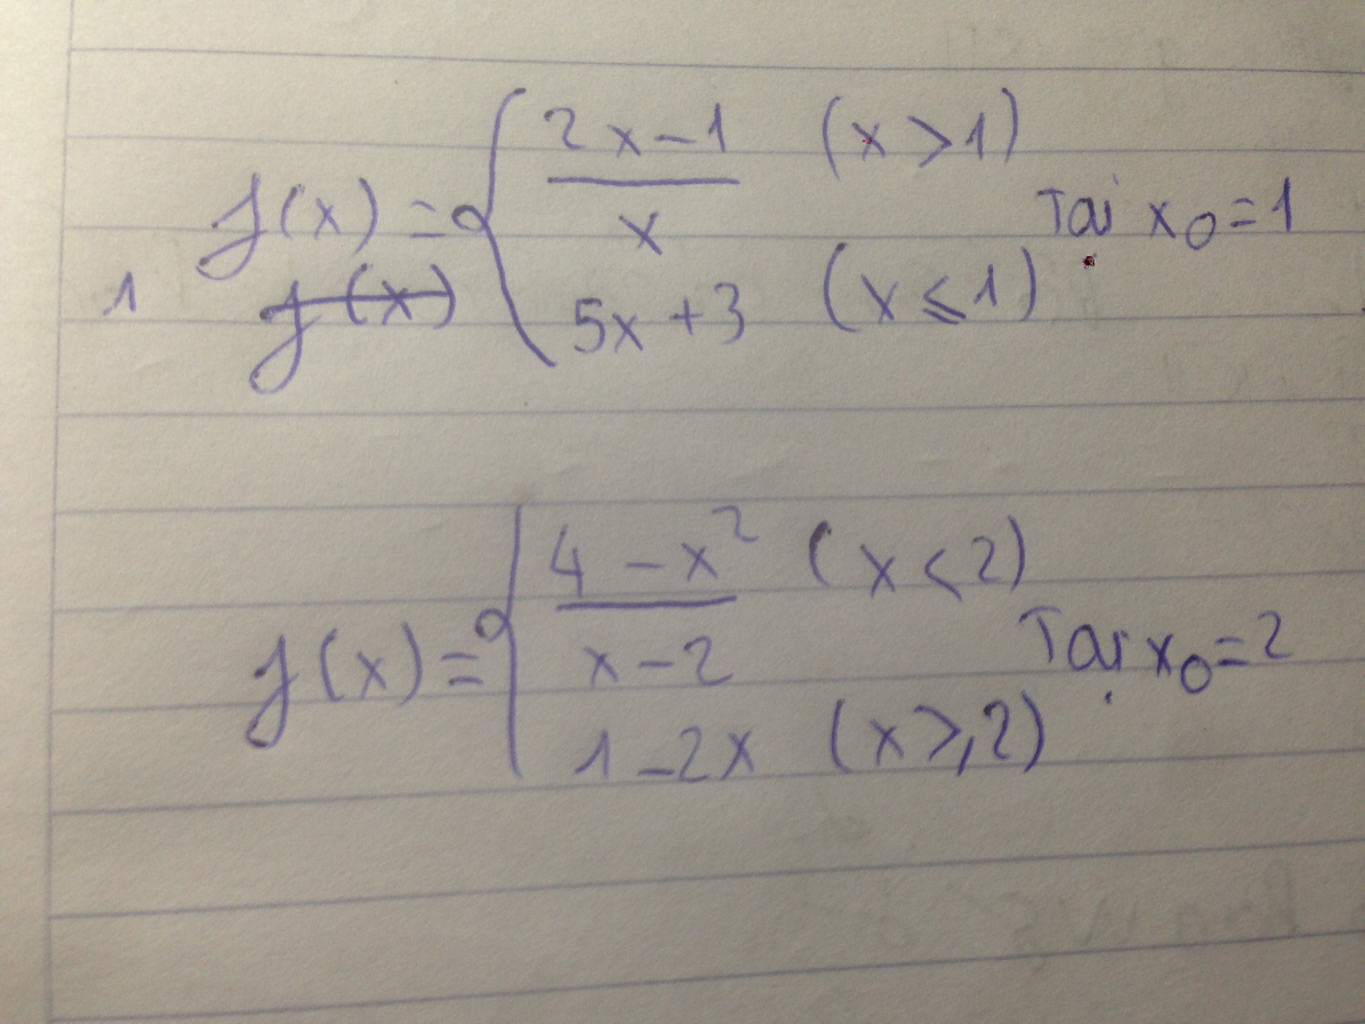 f(x) = { (2x-1)/x (x > 1)
5x + 3 (x ⩽ 1) Tại x₀ = 1
1 f(x)
f(x) = { (4 - x²)/(x - 2) (x < 2)
1 - 2x (x ⩾ 2) Tại x₀ = 2